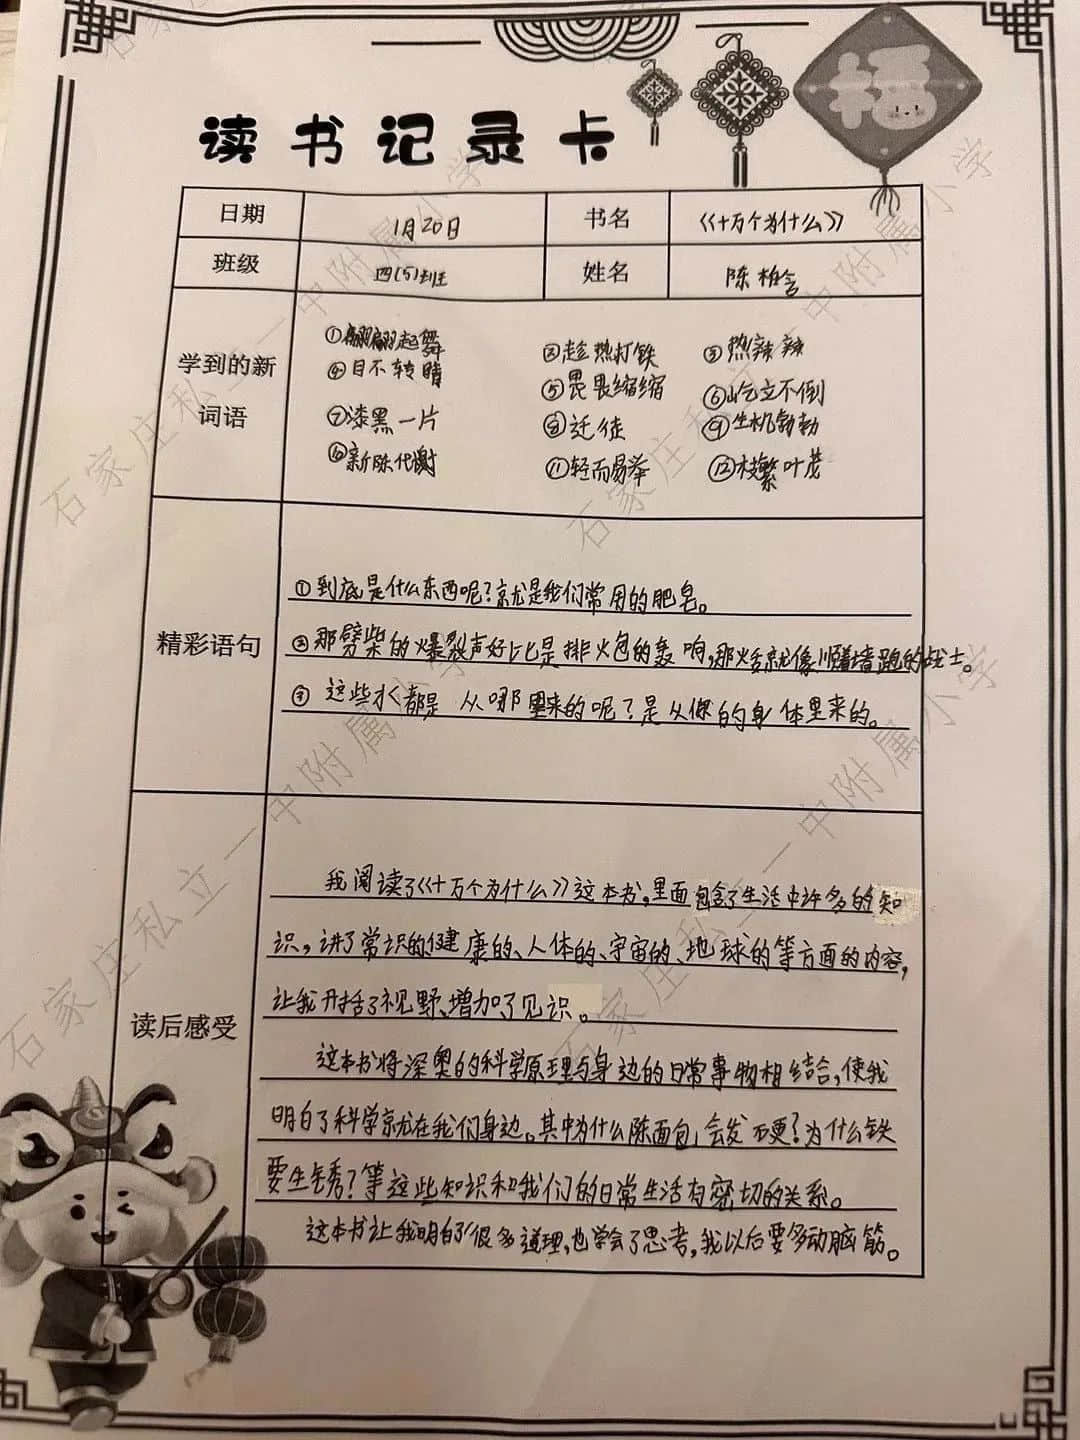 福
读书记录卡
日期 1月20日 书名 《十万个为什么》
班级 四(5)班 姓名 陈柏含
学到的新词语
①翩翩起舞 ②趁热打铁 ③热辣辣
④目不转睛 ⑤畏畏缩缩 ⑥屹立不倒
⑦漆黑一片 ⑧迁徙 ⑨生机勃勃
⑩新陈代谢 ⑪轻而易举 ⑫枝繁叶茂
精彩语句
①到底是什么东西呢?就是我们常用的肥皂。
②那劈柴的爆裂声好比是排火包的轰响,那火焰就像顺着墙跑的战士。
③这些水都是从哪里来的呢?是从你的身体里来的。
读后感受
我阅读了《十万个为什么》这本书,里面包含了生活中许多的知
识,讲了常识的、健康的、人体的、宇宙的、地球的等方面的内容,
让我开括了视野、增加了见识。
这本书将深奥的科学原理与身边的日常事物相结合,使我
明白了科学就在我们身边。其中为什么陈面包,会发不更?为什么铁
要生锈?等这些知识和我们的日常生活有密切的关系。
这本书让我明白了很多道理,也学会了思考,我以后要多动脑筋。
石家庄私立一中附属小学
石家庄私立一中附属小学
石家庄私立一中附属小学
石家庄私立一中附属小学